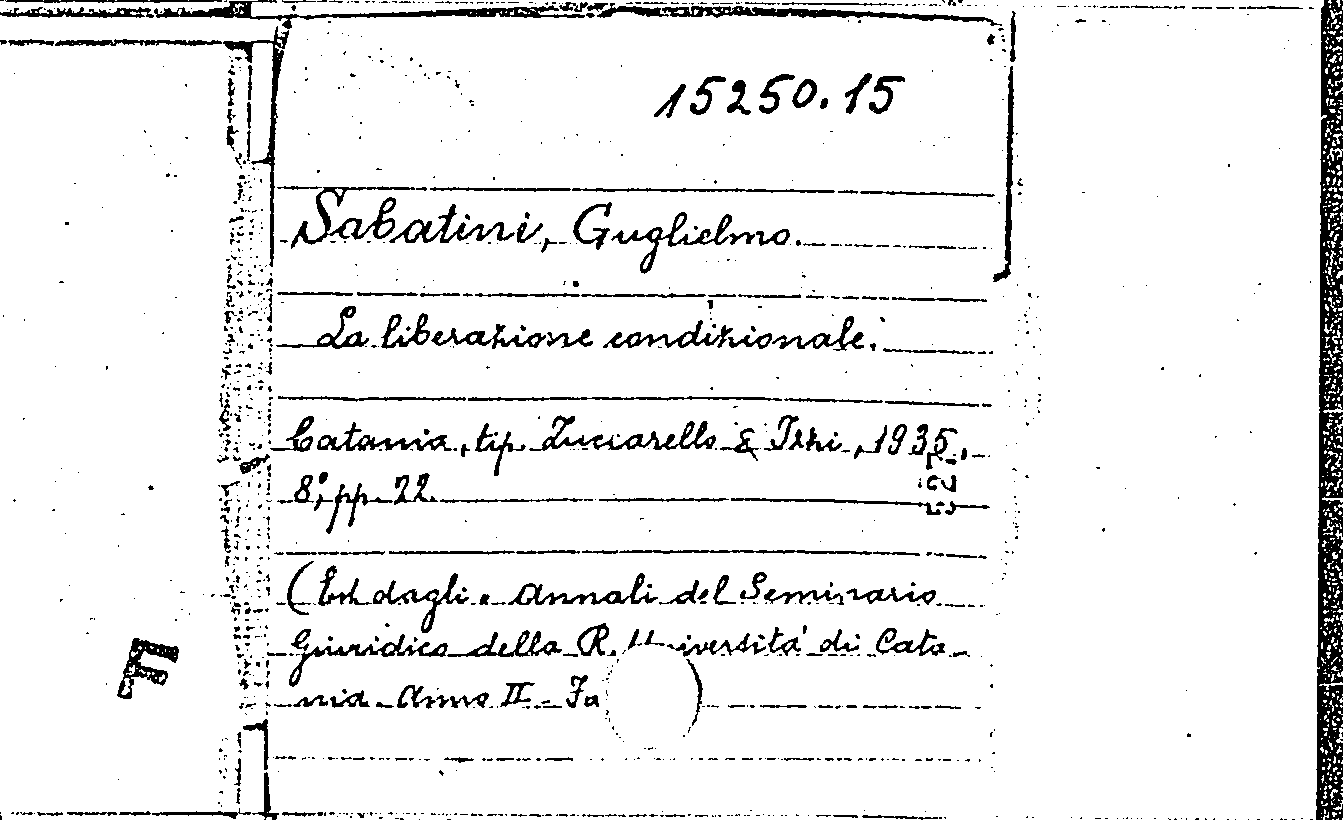 15250.15
Sabatini, Guglielmo.
La liberazione condizionale.
Catania, tip. Zuccarello & Izzi, 1935,
8°, pp. 22.
(Est. dagli "Annali del Seminario
Giuridico della R. Università di Cata-
nia. Anno II - Fa
F